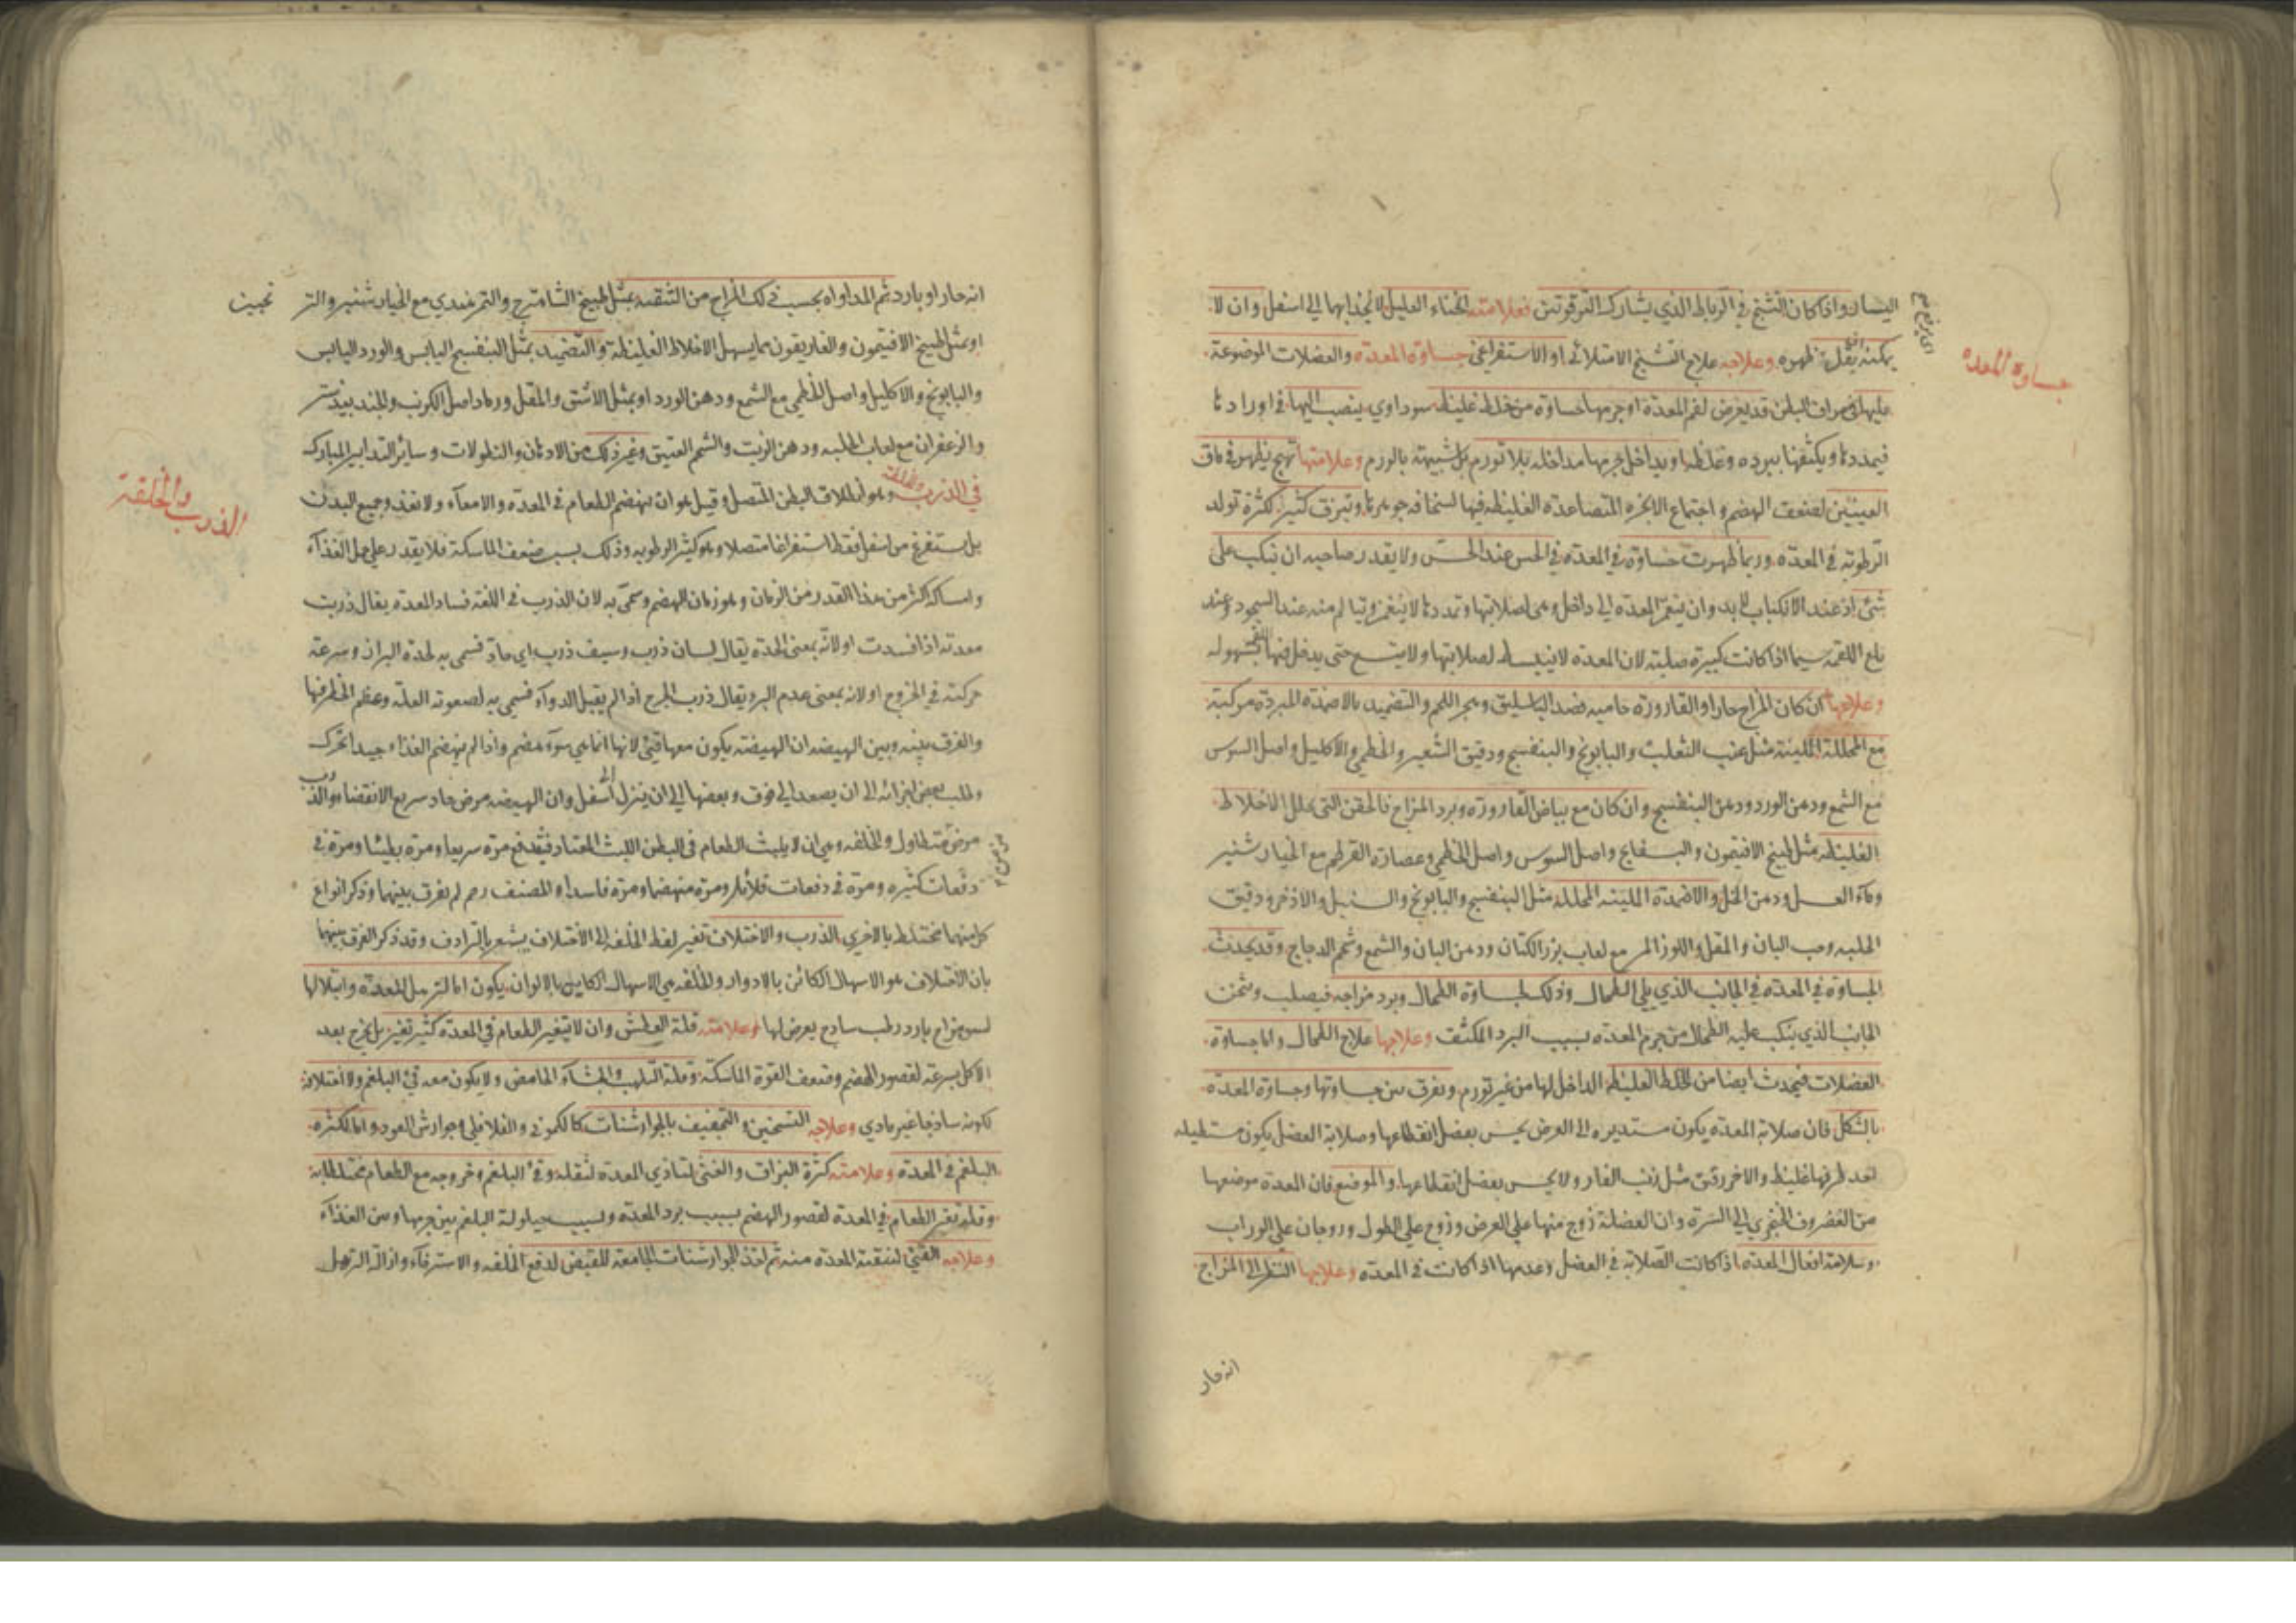 اليسار واذا كان التشنج في الرباط الذي يشارك الترقوتين فعلامته انحناء العليل لانجذابها الى اسفل وان لا
يمكنه ظهوره وعلاجه علاج التشنج الامتلائي او الاستفراغي جساوة المعدة والعضلات الموضوعة
جساوة المعده
عليها في مراق البطن قد يعرض لفم المعدة او جرمها جساوة من خلط غليظ سوداوي ينصب اليها في اورادها
فيمددها ويكثفها ببرده وغلظه او يداخل جرمها مداخلة بلا تورم بل شبيهة بالورم وعلامتها تهيج يظهر في ماق
العينين لضعف الهضم واجتماع الابخرة المتصاعدة الغليظه فيها لسخافة جوهرها وتبزق كثير لكثرة تولد
الرطوبة في المعدة وربما ظهرت جساوة في المعدة في الحس عند الجس ولا يقدر صاحبه ان ينكب على
شئ اذ عند الانكباب لا بد وان ينغمز المعدة الى داخل وهي لصلابتها وتمددها لا ينغمز ويتالم منه عند السجود وعند
بلع اللقمة سيما اذا كانت كبيرة صلبة لان المعدة لا ينبسط لصلابتها ولا يتسع حتى يدخل فيها بسهوله
وعلاجها ان كان المزاج حارا والقارورة حاميه فصد الباسليق وهجر اللحم والتضميد بالاضمدة المبردة مركبة
مع المحللة الملينة مثل عنب الثعلب والبابونج والبنفسج ودقيق الشعير والخطمي والاكليل واصل السوس
مع الشمع ودهن الورد ودهن البنفسج وان كان مع بياض القارورة وبرد المزاج فالحقن التي تحلل الاخلاط
الغليظه مثل طبيخ الافتيمون والبسفايج واصل السوس واصل الخطمي وعصارة القرطم مع الخيارشنبر
وماء العسل ودهن الخل والاضمدة الملينه المحللة مثل البنفسج والبابونج والسنبل والاذخر ودقيق
الحلبه وحب البان والمقل واللوز المر مع لعاب بزر الكتان ودهن البان والشمع وشحم الدجاج وقد يحدث
الجساوة في المعدة في الجانب الذي يلي الطحال وذلك لجساوة الطحال وبرد مزاجه فيصلب ويثخن
الجانب الذي ينكب عليه الطحال من جرم المعدة بسبب البرد المكثف وعلاجها علاج الطحال واما جساوة
العضلات فيحدث ايضا من الخلط الغليظ الداخل لها من غير تورم ويفرق بين جساوتها وجساوة المعدة
بالشكل فان صلابة المعدة يكون مستديره الى العرض يحس بفصل انقطاعها وصلابة العضل يكون مستطيله
احد طرفيها غليظ والاخر رقيق مثل ذنب الفار ولا يحس بفصل انقطاعها والموضع فان المعدة موضعها
من الغضروف الخنجري الى السرة وان العضلة زوج منها على العرض وزوج على الطول وزوجان على الوراب
وسلامة افعال المعدة اذا كانت الصلابة في العضل وعدمها اذا كانت في المعدة وعلاجها النظر الى المزاج
انه حار
انه حار او بارد ثم المداواة بحسب ذلك المزاج من التنقيه بمثل طبيخ الشاهترج والتمر هندي مع الخيارشنبر والتر نجبين
او بمثل طبيخ الافتيمون والغاريقون مما يسهل الاخلاط الغليظة والتضميد بمثل البنفسج اليابس والورد اليابس
والبابونج والاكليل واصل الخطمي مع الشمع ودهن الورد او بمثل الاشق والمقل ورماد اصل الكرنب والجندبيدستر
والزعفران مع لعاب الحلبه ودهن الزيت والشحم العتيق وغير ذلك من الادهان والنطولات وساير التدابير المباركه
في الذرب والخلفة وهو انطلاق البطن المتصل وقيل هو ان ينهضم الطعام في المعدة والامعآء ولا تغذي جميع البدن
الذرب والخلفة
بل يستفرغ من اسفل فقط استفراغا متصلا وهو كثير الرطوبه وذلك بسبب ضعف الماسكة فلا يقدر على حمل الغذآء
وامساكه اكثر من هذا القدر من الزمان وهو زمان الهضم وسمي به لان الذرب في اللغة فساد المعدة يقال ذربت
معدته اذا فسدت او لانه بمعنى الحدة يقال لسان ذرب وسيف ذرب اي حاد فسمي به لحدة البراز وسرعة
حركته في الخروج او لانه بمعنى عدم البرء يقال ذرب الجرح اذا لم يقبل الدوآء فسمي به لصعوبة العلة وعظم الخطر فيها
والفرق بينه وبين الهيضه ان الهيضة يكون معها قيئ لانها انما هي سوء هضم واذا لم ينهضم الغذاء جيدا تحرك
وطلب بعض اجزائه الى ان يصعد الى فوق وبعضها الى ان ينزل الى اسفل وان الهيضه مرض حاد سريع الانقضاء والذرب
مرض متطاول والخلفه وهي ان لا يلبث الطعام في البطن اللبث المعتاد فيندفع مرة سريعا ومرة بطيئا ومرة في
دفعات كثيره ومرة في دفعات قلائل ومرة منهضما ومرة فاسدا والمصنف رحم لم يفرق بينهما وذكر انواع
كل منهما مختلطا بالاخرى الذرب والاختلاف تغير لفظ الخلفه الى الاختلاف يشعر بالترادف وقد ذكر الفرق بينهما
بان الاختلاف هو الاسهال الكائن بالادوار والخلفه هي الاسهال الكاين بالالوان يكون اما لترهل المعدة وابتلالها
لسوء مزاج بارد رطب ساذج يعرض لها وعلامته قلة العطش وان لا يتغير الطعام في المعدة كثير تغير بل يخرج بعد
الاكل بسرعة لقصور الهضم وضعف القوة الماسكة وقلة التلهب والجشآء الحامض ولا يكون معه قيئ البلغم ولا اختلافه
لكونه ساذجا غير مادي وعلاجه التسخين والتجفيف بالجوارشنات كالكموني والفلافلي وجوارش العود واما لكثرة
البلغم في المعدة وعلامته كثرة البزاق والغثى لتاذي المعدة لثقله وقئ البلغم وخروجه مع الطعام مختلطا به
وقلة تغير الطعام في المعدة لقصور الهضم بسبب برد المعدة وبسبب حيلولة البلغم بين جرمها وبين الغذآء
وعلاجه القيئ لتنقية المعدة منه ثم اخذ الجوارشنات الجامعة للقبض لدفع الخلفه والاسترخآء وازالة الترهل